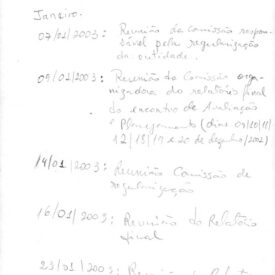 Janeiro.
07/01/2003: Reunião da Comissão respon-
sável pela regularização
da entidade.
09/01/2003: Reunião da Comissão orga-
nizadora do relatório final
do encontro de Avaliação
e Planejamento (dias 09/10/11/
12/18/19 e 20 de dezembro/2002)
14/01/2003: Reunião Comissão de
regularização
16/01/2003: Reunião do Relatório
final
23/01/2003: Reunião do